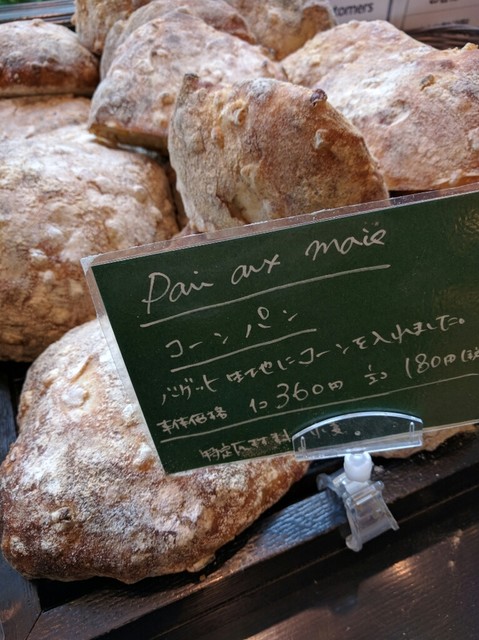 tomers
Pain aux maïs
コーンパン
バゲット生地にコーンを入れました。
本体価格 1コ 360円 1/2コ 180円(税
特定原材料 小麦